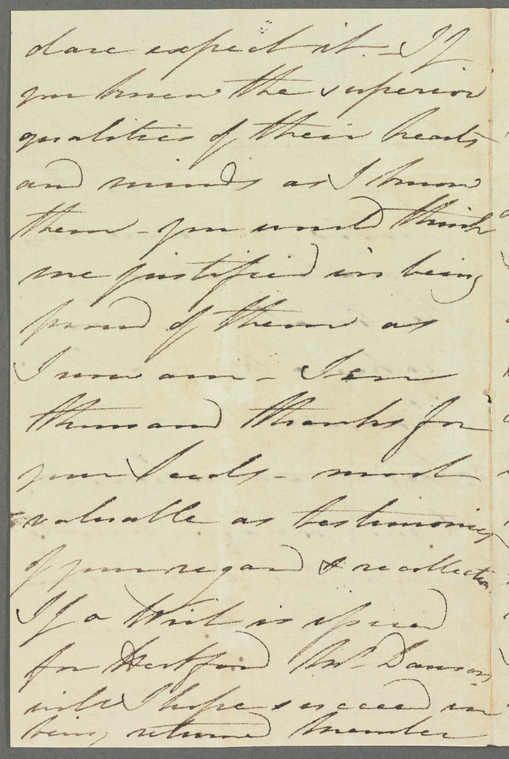 dare expect it. - If
you knew the superior
qualities of their hearts
and minds as I know
them - you would think
me justified in being
proud of them as
I now am - Ten
thousand thanks for
your Seeds - most
valuable as testimonies
of your regard & recollection
If a Writ is issued
for Hertford Mr. Dawson
will I hope succeed in
being returned member